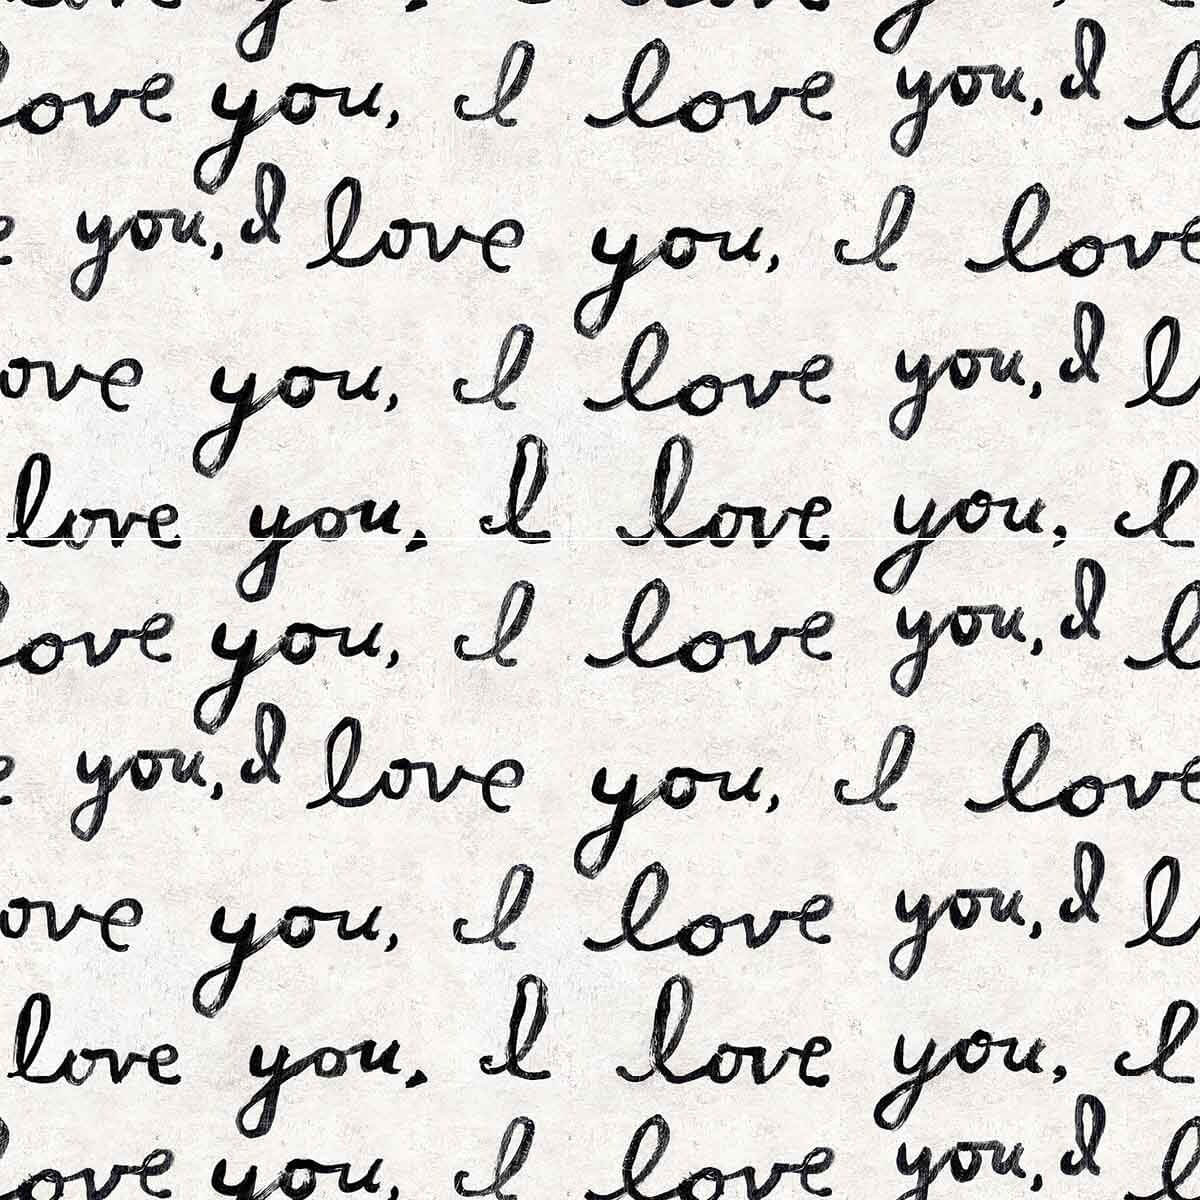 love you, I love you, I l
e you, I love you, I love
ove you, I love you, I l
love you, I love you, I
love you, I love you, I l
e you, I love you, I love
ove you, I love you, I l
love you, I love you, I
love you, I love you, I